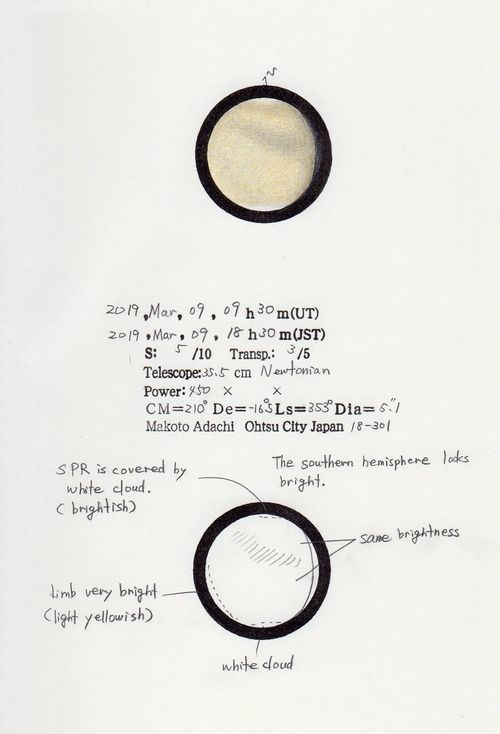 2019, Mar, 09, 09 h 30 m(UT)
2019, Mar, 09, 18 h 30 m(JST)
S: 5 /10 Transp.: 3 /5
Telescope: 35.5 cm Newtonian
Power: 450 × ×
CM=210° De=-16.5° Ls=353° Dia=5."1
Makoto Adachi Ohtsu City Japan 18-301
SPR is covered by
white cloud.
(brightish)
The southern hemisphere looks
bright.
same brightness
limb very bright
(light yellowish)
white cloud